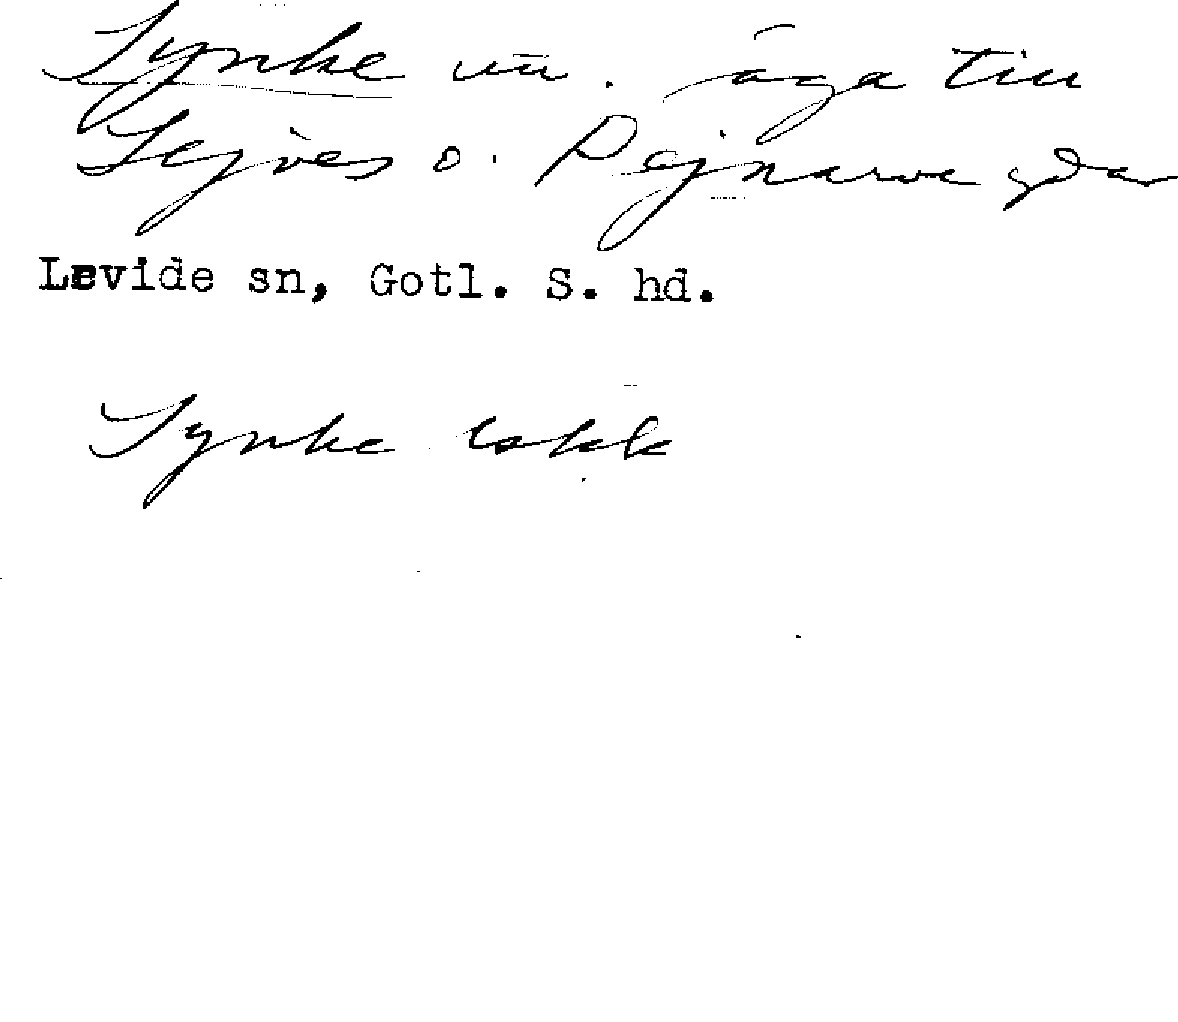 Synke un. äga till
Lejves o. Pejnarve gdar
Levide sn, Gotl. S. hd.
Synke